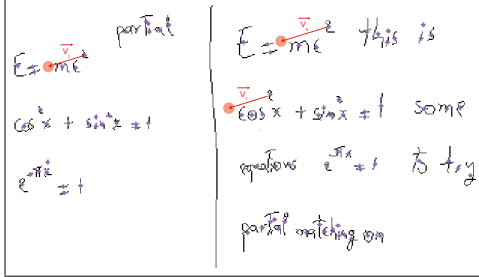 partial
E = mc²
cos²x + sin²x = 1
e^πi = 1
E = mc² this is
cos²x + sin²x = 1 some
equations e^πx = 1 to try
partial matching on
v⃗ᵢ
v⃗ᵢ
v⃗ᵢ